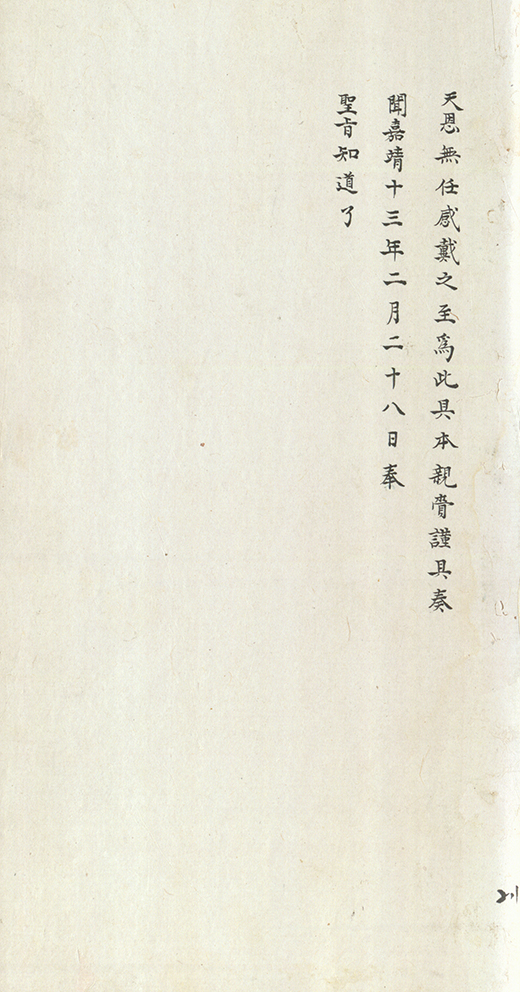 天恩無任感戴之至爲此具本親齎謹具奏
聞嘉靖十三年二月二十八日奉
聖旨知道了